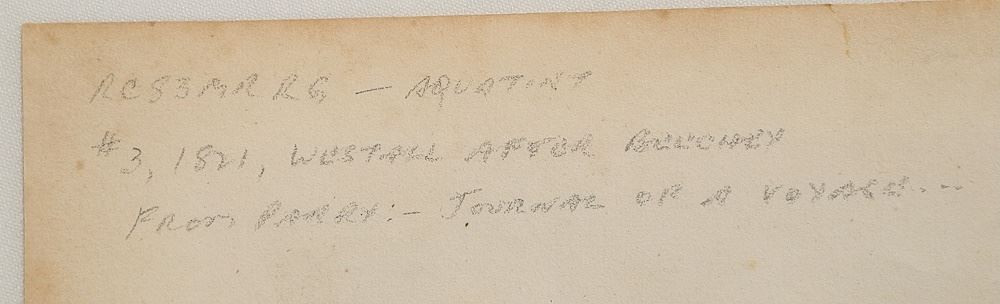 RCS3MRRG — AQUATINT
#3, 1821, WESTALL AFTER BEECHEY
FROM PARRY:- JOURNAL OF A VOYAGE...